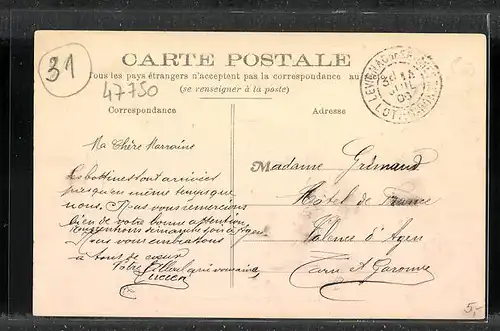 31
47750
CARTE POSTALE
Tous les pays étrangers n'acceptent pas la correspondance au
(se renseigner à la poste)
Correspondance
Adresse
Ma Chère Marraine
Les bottines sont arrivées
presqu'en même temps que
nous. Nous vous remercions
bien de votre bonne attention,
Nous vous embrassons
à tous de cœur
Votre filleul qui vous aime,
Lucien
Madame Grimaud
Hôtel de France
Valence d'Agen
Tarn et Garonne
LOT
5,-